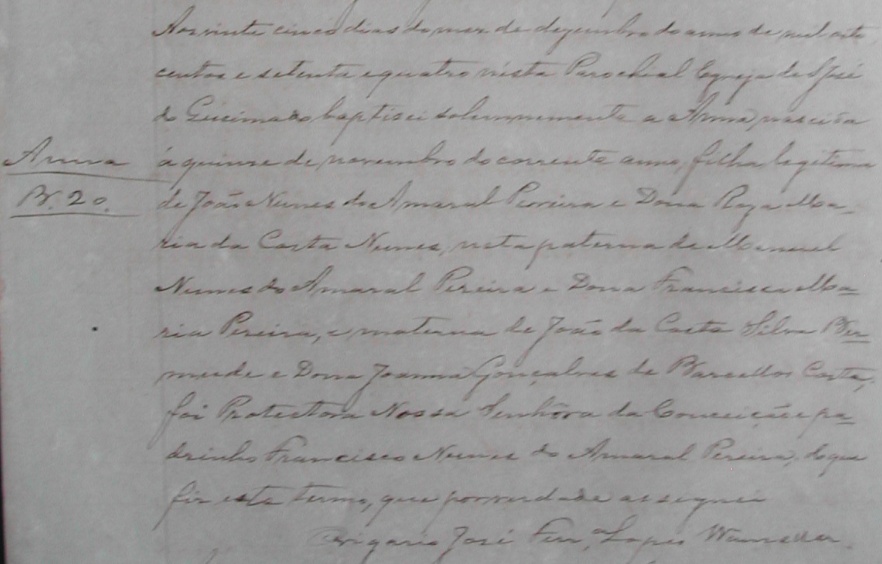 Aos vinte cinco dias do mez de dezembro do anno de mil oito
centos e setenta e quatro nésta Parochial Egreja de São José
do Queimado baptisei solemnemente a Anna, nascida
Anna
á quinze de novembro do corrente anno, filha legitima
B. 20.
de João Nunes do Amaral Pereira e Dona Roza Ma-
ria da Costa Nunes, neta paterna de Manuel
Nunes do Amaral Pereira e Dona Francisca Ma-
ria Pereira, e materna de João da Costa Silva Ber-
mude e Dona Joanna Gonçalves de Barcellos Costa,
foi Protectora Nossa Senhôra da Conceição e pa-
drinho Francisco Nunes do Amaral Pereira, do que
fiz este termo, que por verdade assignei
O vigario José Ferr.ª Lopes